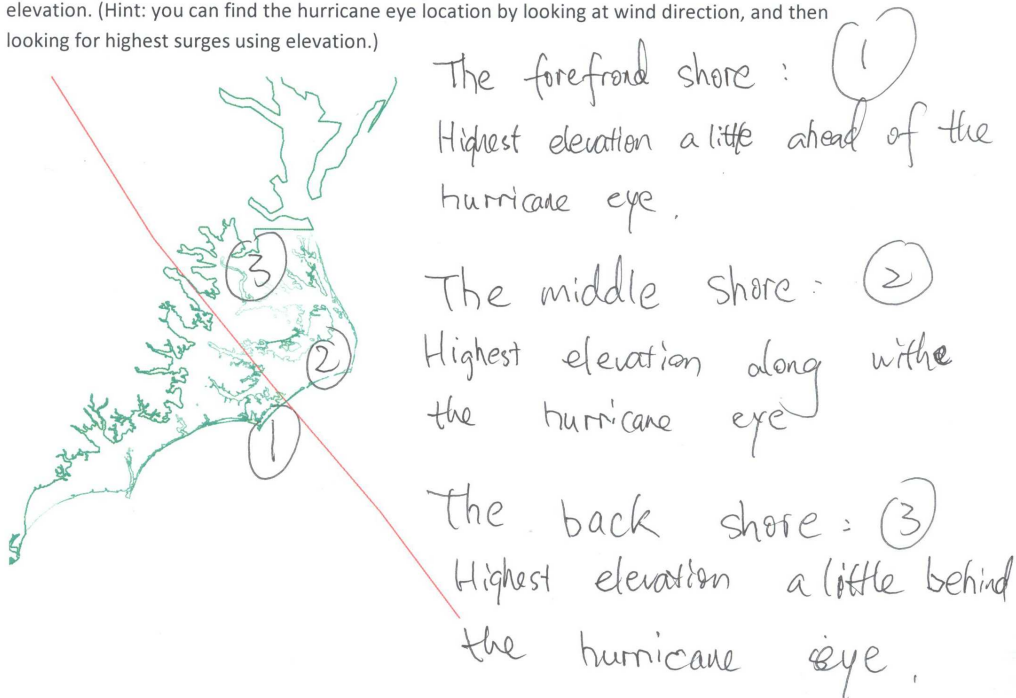 elevation. (Hint: you can find the hurricane eye location by looking at wind direction, and then
looking for highest surges using elevation.)
The forefrond shore : 1
Highest elevation a little ahead of the
hurricane eye.
The middle shore : 2
Highest elevation along withe
the hurricane eye
The back shore : 3
Highest elevation a little behind
the hurricane eye.
3
2
1